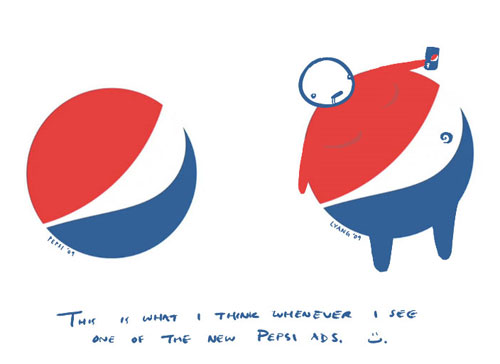 PEPSI '09
LYANG '09
THIS IS WHAT I THINK WHENEVER I SEE
ONE OF THE NEW PEPSI ADS. :).